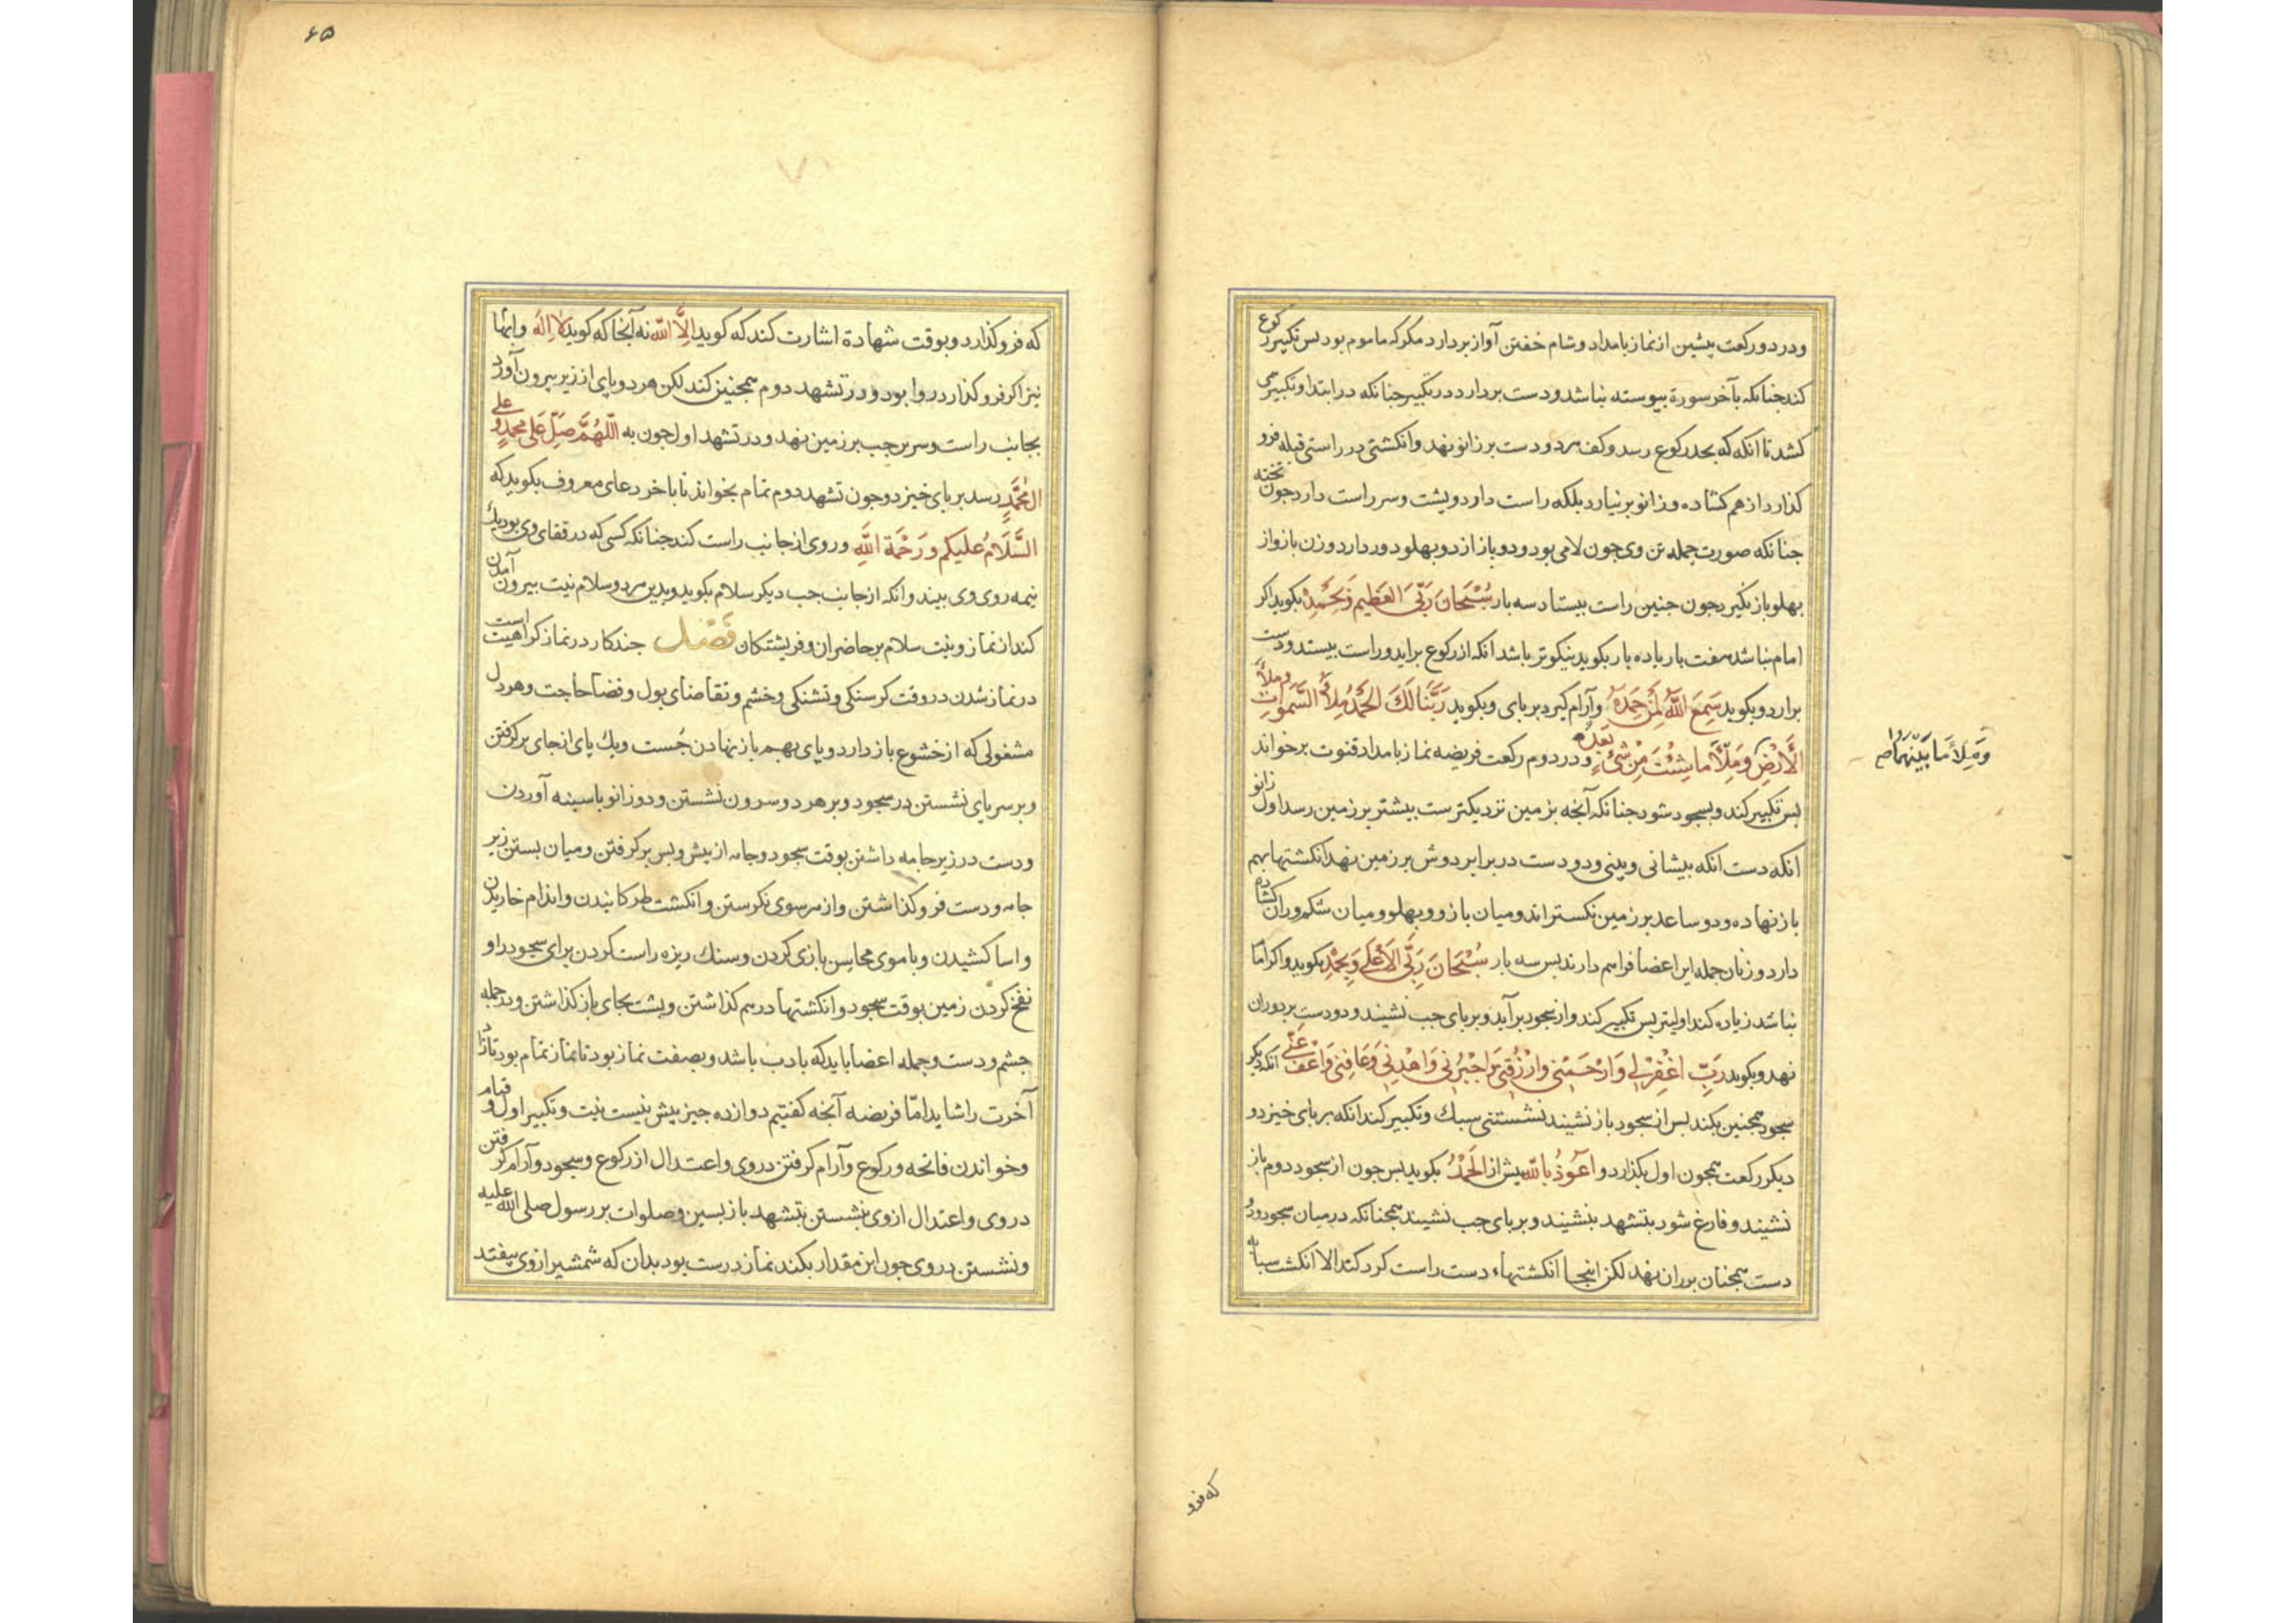 ودر دو رکعت پیشین از نماز بامداد و شام خفتن آواز بردارد مکر که ماموم بود بس تکبیر رکوع
کند جنانکه بآخر سورة بیوسته نباشد و دست بردارد در تکبیر جنانکه در ابتدا و تکبیر می
کشد تا انکه که بحد رکوع رسد و کف هر دو دست بر زانو نهد و انکشتی در راستی قبله فرو
کذارد از هم کشاده و زانو بر نیارد بلکه راست دارد و پشت و سر راست دارد جون تخته
جنانکه صورت جمله تن وی جون لامی بود و دو بازو از دو بهلو دور دارد و زن بازو از
بهلو باز نکیرد جون جنین راست بیستاد سه بار سُبْحَانَ رَبِّیَ العَظِیمِ وَبِحَمْدِهِ بکوید اکر
امام نباشد هفت بار یا ده بار بکوید نیکوتر باشد انکه از رکوع براید و راست بیستد و دست
برارد و بکوید سَمِعَ اللَّهُ لِمَنْ حَمِدَهُ وآرام کیرد بر پای و بکوید رَبَّنَا لَکَ الحَمْدُ مِلأَ السَّمَوَاتِ وملأ
الأَرْضِ وَمِلأَ مَا شِئْتَ مِنْ شَیْءٍ بَعْدَهُ ودر دوم رکعت فریضه نماز بامداد قنوت برخواند
وَمِلأَ مَا بَیْنَهُمَا
بس تکبیر کند و بسجود شود جنانکه آنجه بزمین نزدیکترست بیشتر بر زمین رسد اول زانو
انکه دست انکه بیشانی و بینی و دو دست در برابر دوش بر زمین نهد انکشتها بهم
باز نهاده و دو ساعد بر زمین نکستراند و میان بازو و بهلو و میان شکم و ران کشاده
دارد و زنان جمله این اعضا فراهم دارند بس سه بار سُبْحَانَ رَبِّیَ الأَعْلَی وَبِحَمْدِهِ بکوید و اکر امام
نباشد زیاده کند اولیتر بس تکبیر کند و از سجود برآید و بر پای جب نشیند و دو دست بر دو ران
نهد و بکوید رَبِّ اغْفِرْ لِی وَارْحَمْنِی وَارْزُقْنِی وَاجْبُرْنِی وَاهْدِنِی وَعَافِنِی وَاعْفُ عَنِّی انکه دیکر
سجود همجنین بکند بس از سجود باز نشیند نشستنی سبک و تکبیر کند انکه بر پای خیزد و
دیکر رکعت همجون اول بکذارد و اَعُوذُ بِاللَّهِ پیش از الحَمْدُ بکوید بس جون از سجود دوم باز
نشیند و فارغ شود بتشهد بنشیند و بر پای جب نشیند همجنانکه در میان سجود و دو
دست همجنان بر ران نهد لکن اینجا انکشتهاء دست راست کرد کند الا انکشت سبابه
که فرو
۶۵
که فرو کذارد و بوقت شهادة اشارت کند که کوید اِلَّا اللّه نه آنجا که کوید لا اِلَهَ و ابهام
نیز اکر فرو کذارد روا بود و در تشهد دوم همجنین کند لکن هر دو پای از زیر بیرون آورد
بجانب راست و سرین جب بر زمین نهد و در تشهد اول جون به اللّهُمَّ صَلِّ عَلَی مُحَمَّدٍ و علی
الِ مُحَمَّدٍ رسد بر پای خیزد و جون تشهد دوم تمام بخواند تا باخر دعای معروف بکوید که
السَّلَامُ عَلَیکم وَرَحْمَةُ اللَّهِ وروی از جانب راست کند جنانکه کسی که در قفای وی بود یک
نیمه روی وی بیند و انکه از جانب جب دیکر سلام بکوید و بدین هر دو سلام نیت بیرون آمدن
کند از نماز و نیت سلام بر حاضران و فریشتکان فَصْل جند کار در نماز کراهیت است
در نماز شدن در وقت کرسنکی و تشنکی و خشم و تقاضای بول و قضا حاجت و هر دل
مشغولی که از خشوع باز دارد و پای بهم باز نهادن جُست و یک پای از جای برکرفتن
و بر سر پای نشستن در سجود و بر هر دو سرون نشستن و دو زانو با سینه آوردن
و دست در زیر جامه داشتن بوقت سجود و جامه از پیش و بس برکرفتن و میان بستن زیر
جامه و دست فرو کذاشتن و از هر سوی نکرستن و انکشت طرکانیدن و اندام خاریدن
و اسا کشیدن و با موی محاسن بازی کردن و سنک ریزه راست کردن برای سجود را و
نفخ کردن زمین بوقت سجود و انکشتها درهم کذاشتن و پشت بجای باز کذاشتن و در جمله
جشم و دست و جمله اعضا باید که با ادب باشد و بصفت نماز بود تا نماز تمام بود تا زاد
آخرت را شاید امّا فریضه آنجه کفتیم دوازده جیز بیش نیست نیت و تکبیر اول و قیام
و خواندن فاتحه و رکوع و آرام کرفتن در وی و اعتدال از رکوع و سجود و آرام کرفتن
در وی و اعتدال از وی نشستن تشهد باز بسین و صلوات بر رسول صلی الله علیه
و نشستن در وی جون این مقدار بکند نماز درست بود بدان که شمشیر از وی بیفتد